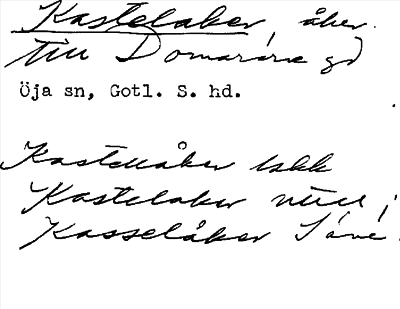 Kastelaker, åker.
till Domararve gd
Öja sn, Gotl. S. hd.
Kastellåker
Kastelaker
Kasselåker Säve.